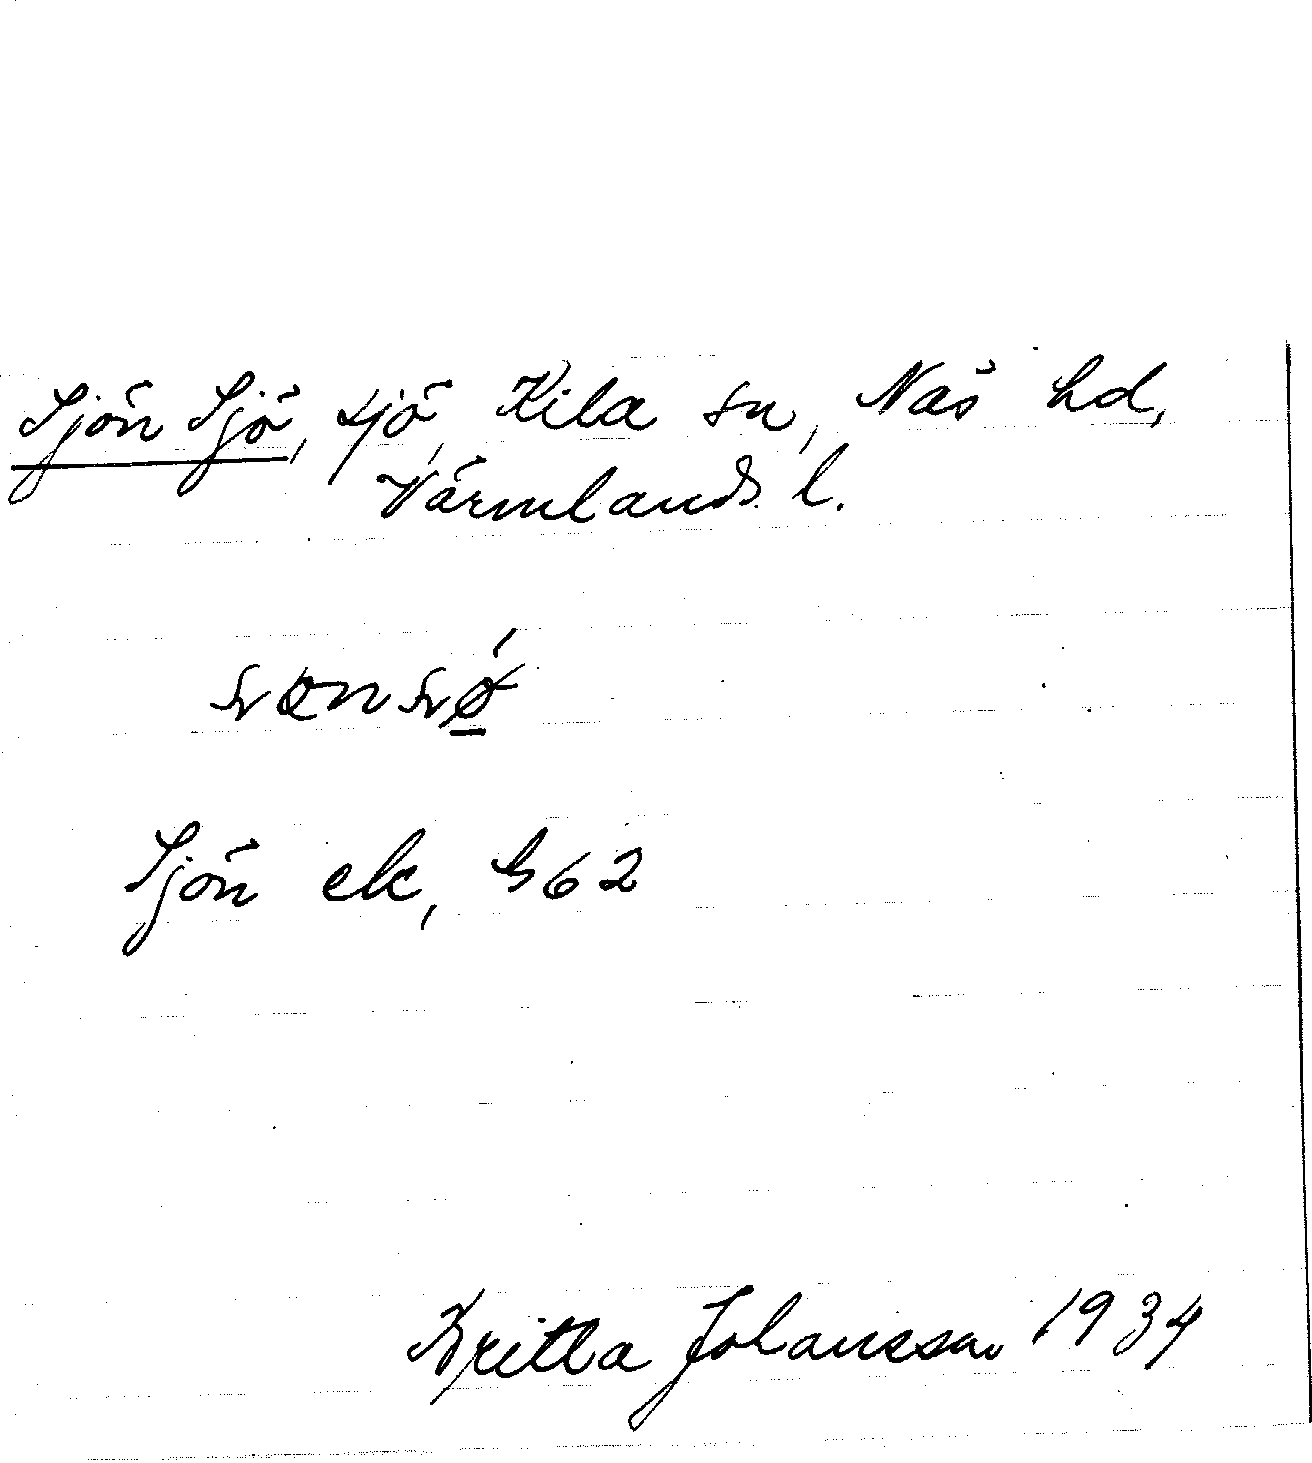 Sjön Sjö, sjö, Kila sn, Näs hd,
Värmlands l.
Sjön ek, G62
Britta Johansson 1934